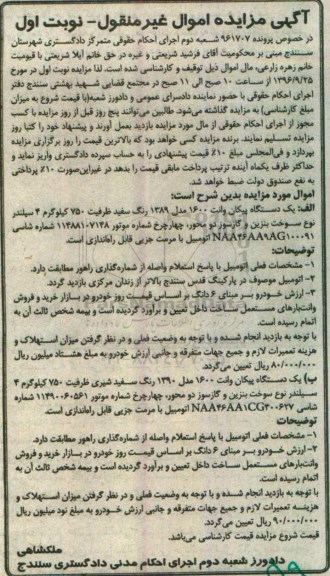 آگهی مزایده اموال غیر منقول - نوبت اول
در خصوص پرونده ۹۶۱۷۰۷ شعبه دوم اجرای احکام حقوقی متمرکز دادگستری شهرستان
سنندج مبنی بر محکومیت آقای فرشید شریعتی و غیره در حق خانم آیلا شریعتی با قیومیت
خانم زهره زارعی، مال اموال ذیل توقیف و کارشناسی شده است. لذا مزایده نوبت اول در مورخ
۱۳۹۶/۹/۲۵ از ساعت ۱۰ صبح الی ۱۱ صبح در مجتمع قضایی شهید بهشتی سنندج دفتر
اجرای احکام حقوقی با حضور نماینده دادسرای عمومی و دادورز شعبه(با قیمت شروع به میزان
مبلغ کارشناسی) به مزایده گذاشته می‌شود. طالبین می‌توانند پنج روز قبل از روز مزایده با کسب
مجوز از اجرای احکام حقوقی از مال مورد مزایده بازدید بعمل آورند و پیشنهاد خود را کتبا روز
مزایده تسلیم نمایند. برنده مزایده کسی خواهد بود که بالاترین قیمت را روز برگزاری مزایده
بپردازد و فی‌المجلس مبلغ ۱۰٪ قیمت پیشنهادی را به حساب سپرده دادگستری واریز نماید و
حداکثر ظرف یکماه آینده ترتیب پرداخت مابقی قیمت را بدهد در غیراین‌صورت ۱۰٪ پرداختی
به نفع صندوق دولت ضبط خواهد شد.
اموال مورد مزایده بدین شرح است:
الف: یک دستگاه پیکان وانت ۱۶۰۰ مدل ۱۳۸۹ رنگ سفید ظرفیت ۷۵۰ کیلوگرم ۴ سیلندر
نوع سوخت بنزین و گازسوز دو محور، چهارچرخ شماره موتور ۱۱۴۸۸۱۰۷۱۴۸ شماره شاسی
NAA۴۶AA۹AG۱۰۰۰۹۱ اتومبیل با مرمت جزیی قابل راه‌اندازی است.
توضیحات:
۱- مشخصات فعلی اتومبیل با پاسخ استعلام واصله از شماره‌گذاری راهور مطابقت دارد.
۲- اتومبیل موصوف در پارکینگ قدس سنندج بالاتر از زندان مرکزی بازدید گردد.
۳- ارزش خودرو بر مبنای ۶ دانگ بر اساس قیمت روز خودرو در بازار خرید و فروش
وانت‌بارهای مستعمل ساخت داخل تعیین و برآورد گردیده است و بیمه شخص ثالث آن به
اتمام رسیده است.
با توجه به بازدید انجام شده و با توجه به وضعیت فعلی و در نظر گرفتن میزان استهلاک و
هزینه تعمیرات لازم و جمیع جهات متفرقه و جانبی ارزش خودرو به مبلغ هشتاد میلیون ریال
۸۰/۰۰۰/۰۰۰ ریال تعیین می‌گردد.
ب) یک دستگاه پیکان وانت ۱۶۰۰ مدل ۱۳۹۰ رنگ سفید شیری ظرفیت ۷۵۰ کیلوگرم ۴
سیلندر نوع سوخت بنزین و گازسوز دو محور، چهارچرخ شماره موتور ۱۱۴۹۰۰۶۰۵۶۱ شماره
شاسی NAA۴۶AA۱CG۳۰۰۶۲۷ اتومبیل با مرمت جزیی قابل راه‌اندازی است.
توضیحات
۱- مشخصات فعلی اتومبیل با پاسخ استعلام واصله از شماره‌گذاری راهور مطابقت دارد.
۲- ارزش خودرو بر مبنای ۶ دانگ بر اساس قیمت روز خودرو در بازار خرید و فروش
وانت‌بارهای مستعمل ساخت داخل تعیین و برآورد گردیده است و بیمه شخص ثالث آن به
اتمام رسیده است.
با توجه به بازدید انجام شده و با توجه به وضعیت فعلی و در نظر گرفتن میزان استهلاک و
هزینه تعمیرات لازم و جمیع جهات متفرقه و جانبی ارزش خودرو به مبلغ نود میلیون ریال
۹۰/۰۰۰/۰۰۰ ریال تعیین می‌گردد.
قیمت شروع مزایده قیمت کارشناسی می‌باشد.
ملکشاهی
دادورز شعبه دوم اجرای احکام مدنی دادگستری سنندج